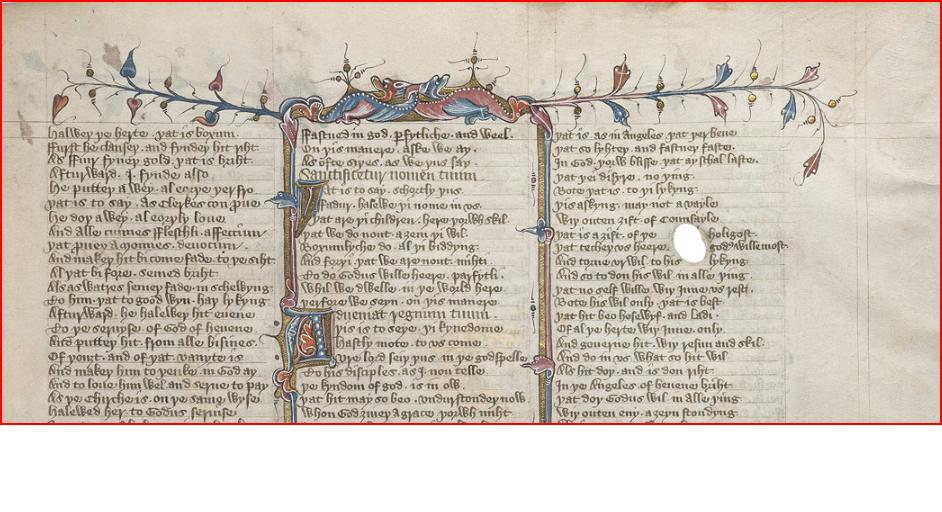 halwey ye herte . yat is boxum .
ffurst he clanseþ . and fyndeþ hit riht .
As ffuir fyneþ gold . yat is briht .
Afturward . I . fynde also
He putteþ a wey . al
yat is to say . As Clerkes con
He doþ a wey . al eorþly loue
And alle ffleschli . affeccium
yat . deuocium .
And makeþ hit bicome fade . to ye siht .
Al yat bi fore . semed briht .
Als as watres seneþ fade . in
So him . yat to good wyn . haþ lykyng
Afturward . he haleweþ hit euene
To ye seruyse . of God of heuene
And putteþ hit . from alle bisines .
Of . and of yat . vanyte is
And makeþ him to þenke . in God ay
And to loue him wel . and serue to pay
As ye chirche is . on ye same wyse
Halewed her to Godus seruise
ffastned in god . and weel .
On yis manere . aske we ay .
As ofte siyes . as we yus say .
Sanctificetur nomen tuum
Yat is to say . yus .
ffadur . halewe yi nome in vs .
Yat are yi children . here yorwh skil .
Yat we do nouȝt . aȝein yi wil .
Boxumlyche do . al yi biddyng .
And foryi . yat we are nouȝt . miȝti
To do Godus wille heere . parfytli .
Whil we dwelle . in ye world here
yerfore we seyn . on yis manere .
Adueniat regnum tuum .
Yis is to seye . yi kynedome
Hastly mote . to vs come .
Vre lord seiþ yus . in ye godspelle
To his disciples . as I . con telle .
Ye kyndom of god . is in ow .
yat hit may so beo . vndurstondeþ now .
Whon God ȝiueþ a grace yorwh miht
Yat is . as in Angeles . yat þer bene
yat so lyhteþ . and fastneþ faste .
In God . yorw blisse yat ay schal laste .
Yat yei disire . no ying .
Bote yat is . to yi lykyng .
Yis askyng . may not a vayle
Wiy outen ȝift . of Counsayle
Yat is a ȝift . of ye holigost .
Yat techeþ vs heere . godus wille most .
And torne vr wil . to his lykyng .
And so to don his wil . in alle ying .
Yat no self wille . Wiy Inne vs rest .
Bote his wil only . yat is best .
Yat hit beo hosewyf . and ladi .
Of al ye herte Wiy Inne . only .
And gouerne hit . Wiy resun and skil .
And do in vs . what so hit wil .
Als hit doþ . and is don riht
In ye Angeles . of heuene briht .
Yat doþ Godus wil . in alle ying
Wiy outen eny . aȝeynstondyng .